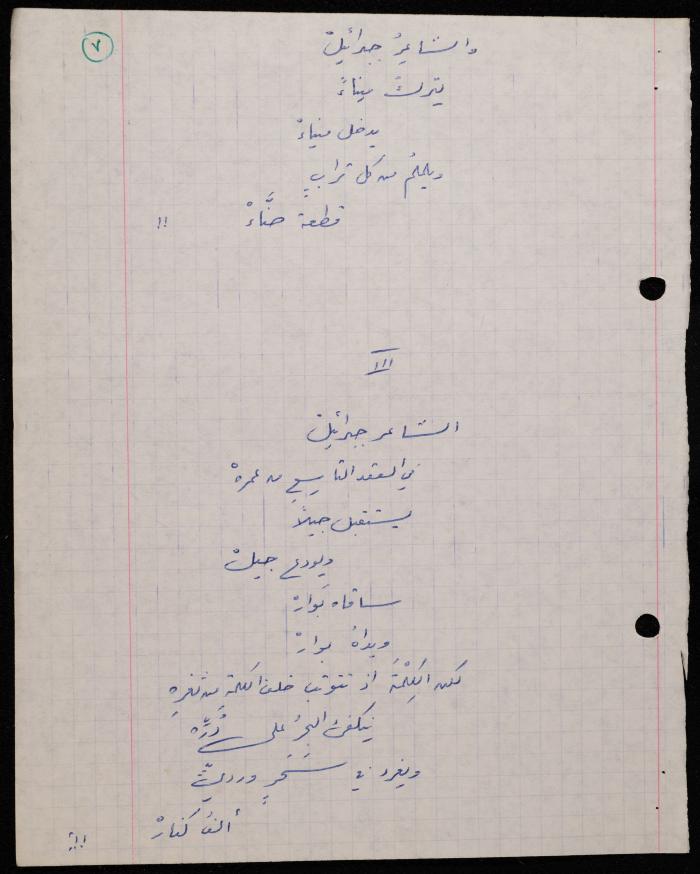 ٧
والشاعرُ جبرائيلْ
يتركُ ميناءً
يدخل ميناءْ
ويلملمُ من كل ترابٍ
قطعة حنَّاءْ !!
III
الشاعر جبرائيلْ
في العقد التاسعِ من عمرهْ
يستقبل جيلاً
ويودع جيلْ
ساقاه بَوارْ
ويداهُ بوارْ
لكن الكِلْمَةَ اذ تتوثب خلف الكلمةِ من ثغرِهِ
ينكفئ البحرُ على دُرِّه
ويغرد في سَحَرٍ ورديٍّ
ألفُ كنارْ !!